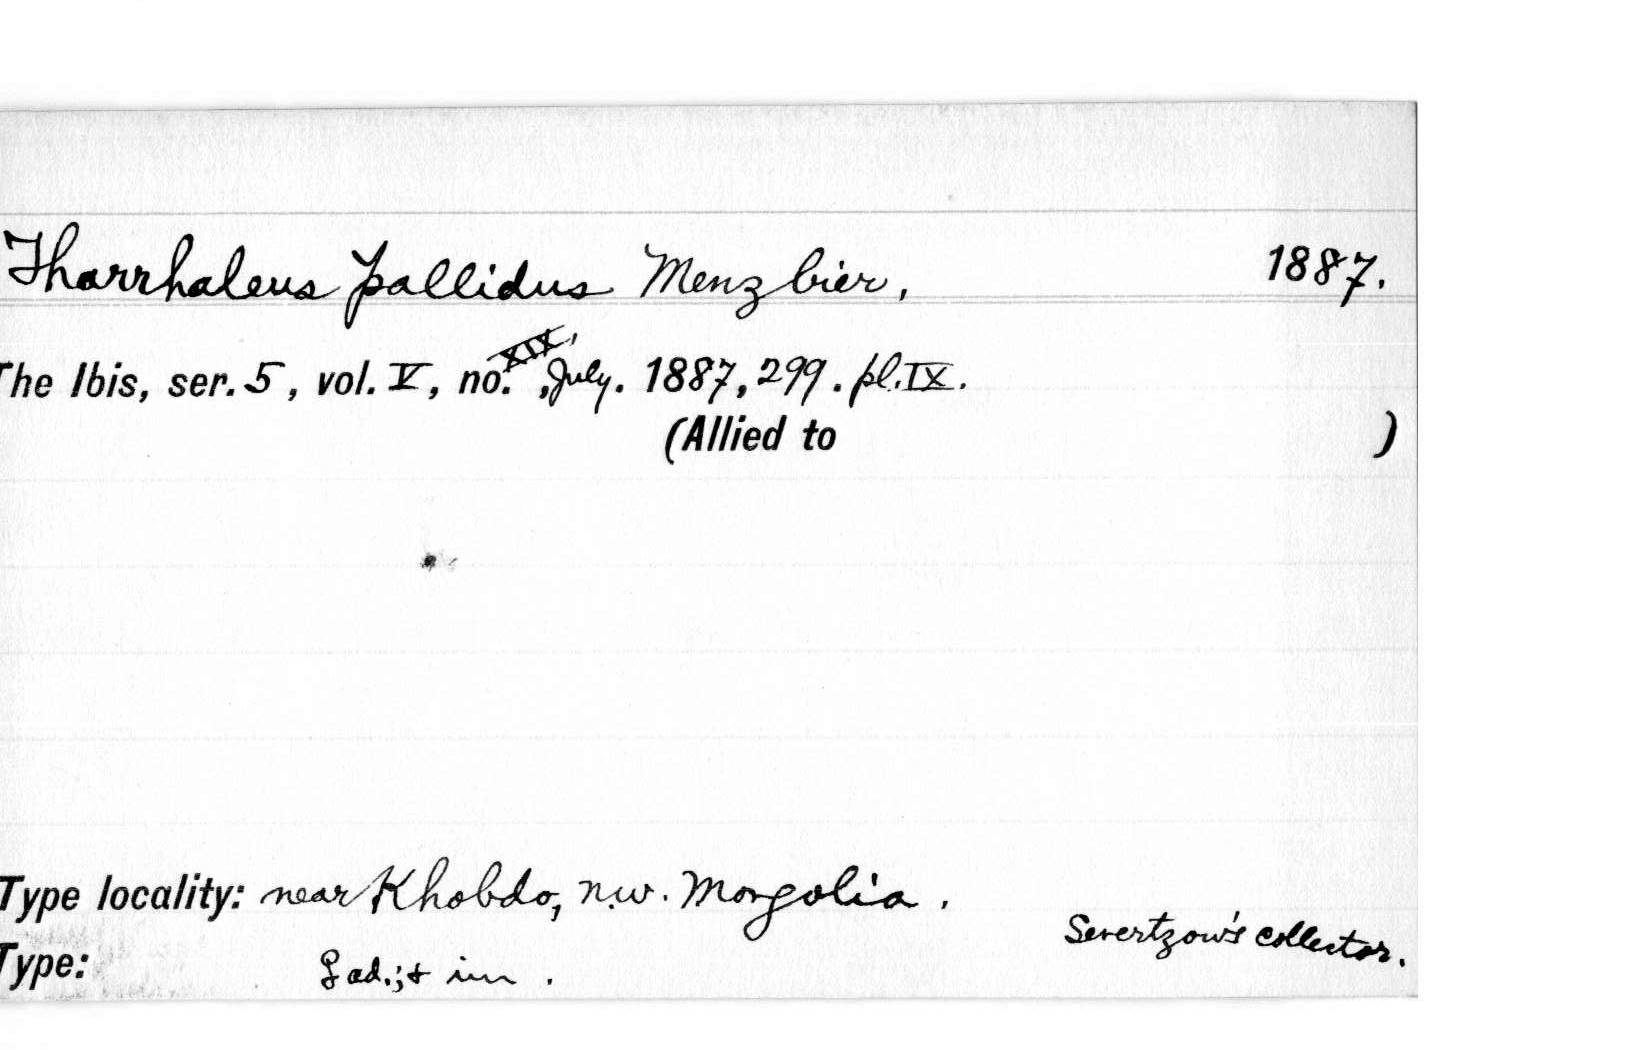 Tharrhaleus pallidus Menzbier, 1887.
The Ibis, ser. 5, vol. V, no. XIX, July. 1887, 299. pl. IX.
(Allied to )
Type locality: near Khobdo, n.w. Mongolia.
Severtzow's collector.
Type: ad.; & im.